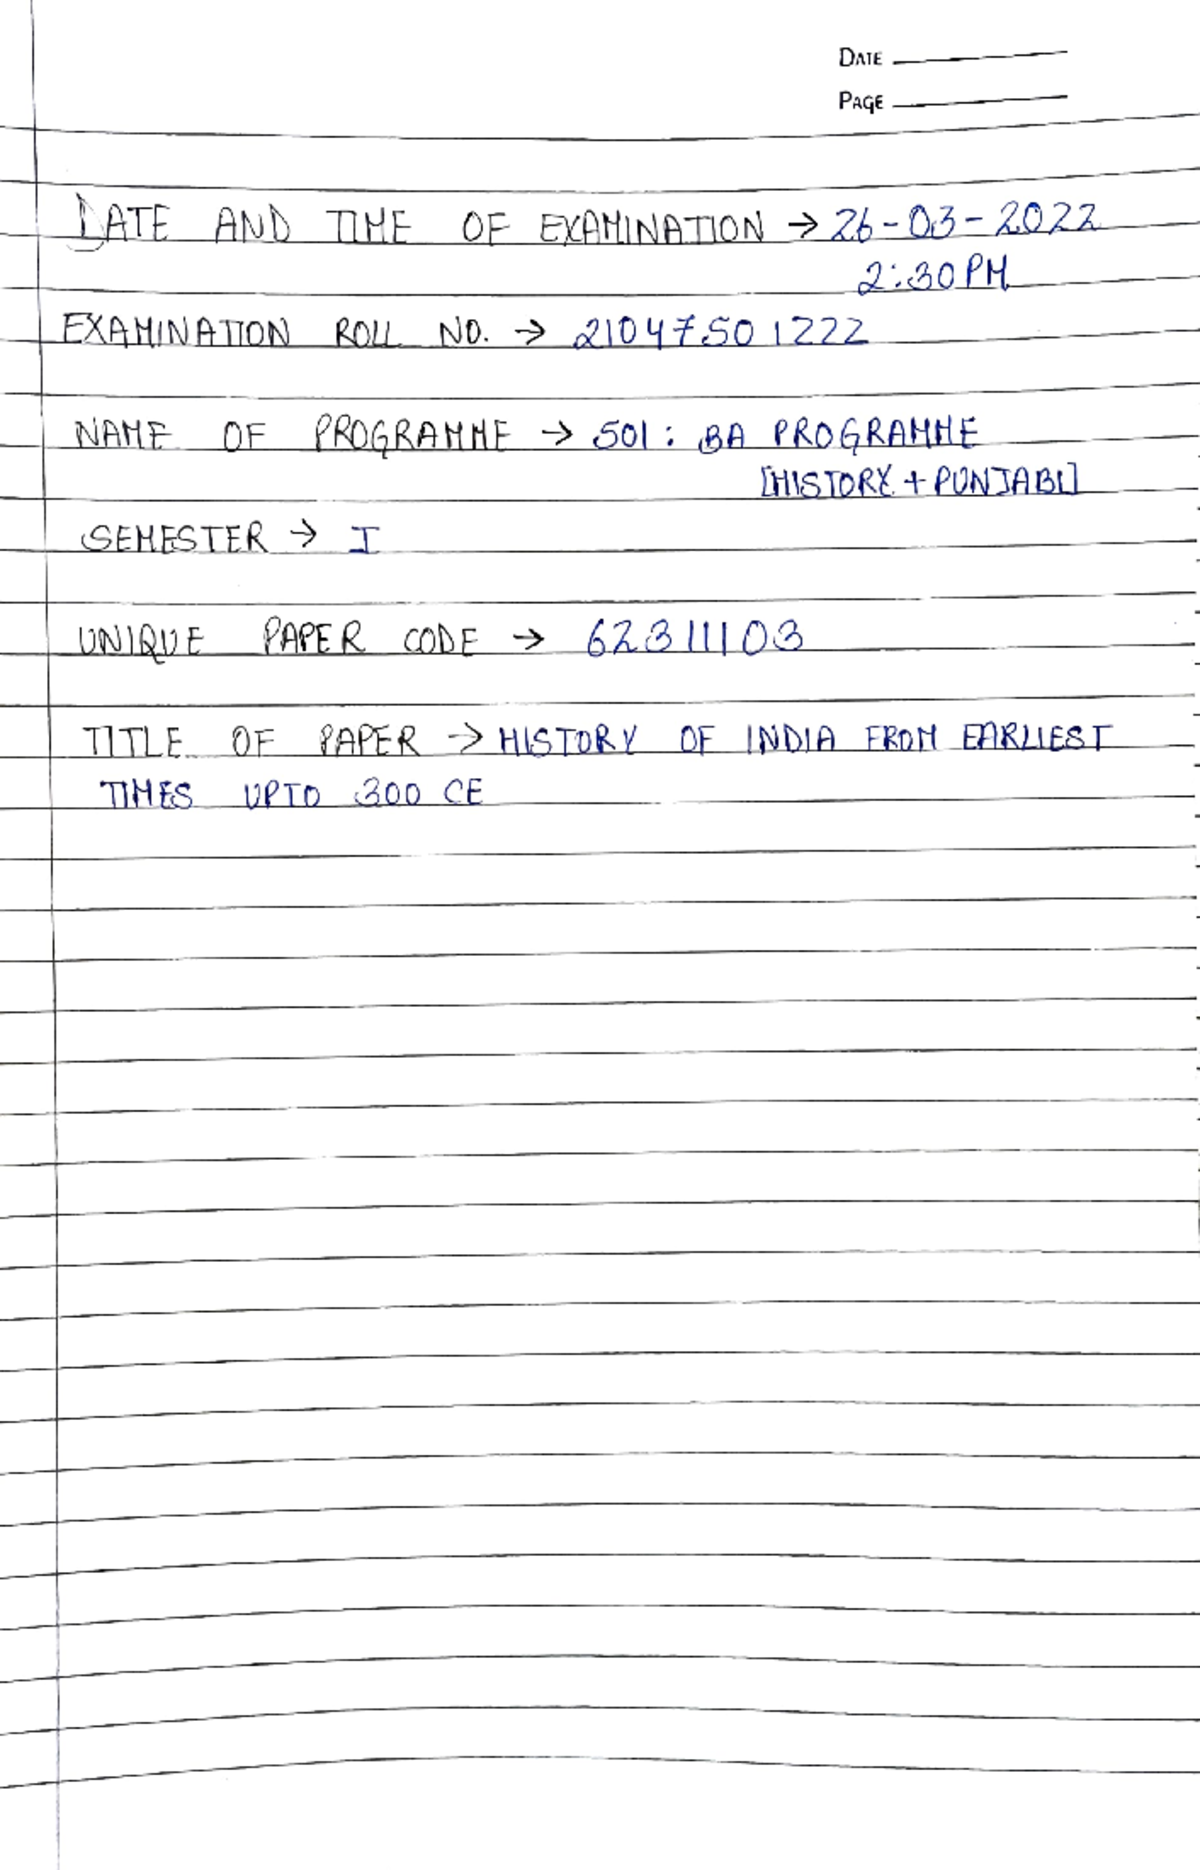 DATE
PAGE
DATE AND TIME OF EXAMINATION → 26-03-2022
2:30PM
EXAMINATION ROLL NO. → 21047501222
NAME OF PROGRAMME → 501: BA PROGRAMME
[HISTORY + PUNJABI]
SEMESTER → I
UNIQUE PAPER CODE → 62311103
TITLE OF PAPER → HISTORY OF INDIA FROM EARLIEST
TIMES UPTO 300 CE